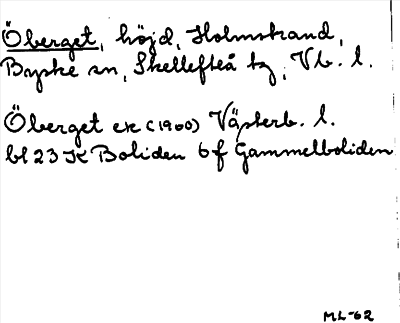 Öberget, höjd, Holmstrand,
Byske sn, Skellefteå tg, Vb. l.
Öberget ek (1960) Västerb. l.
bl 23 K Boliden 6 f Gammelboliden
ML-62